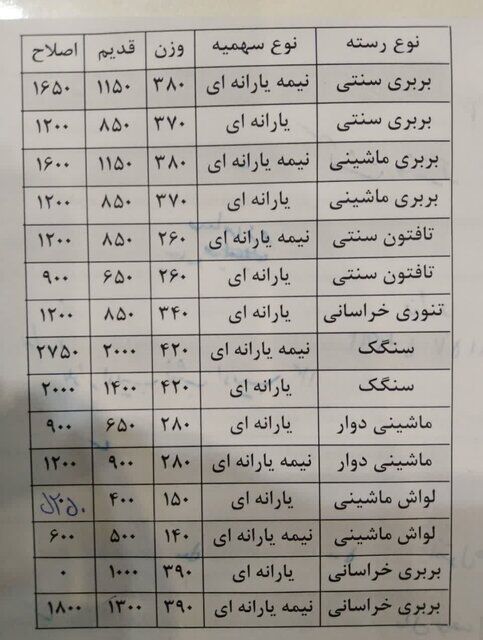 نوع رسته نوع سهمیه وزن قدیم اصلاح
بربری سنتی نیمه یارانه ای ۳۸۰ ۱۱۵۰ ۱۶۵۰
بربری سنتی یارانه ای ۳۷۰ ۸۵۰ ۱۲۰۰
بربری ماشینی نیمه یارانه ای ۳۸۰ ۱۱۵۰ ۱۶۰۰
بربری ماشینی یارانه ای ۳۷۰ ۸۵۰ ۱۲۰۰
تافتون سنتی نیمه یارانه ای ۲۶۰ ۸۵۰ ۱۲۰۰
تافتون سنتی یارانه ای ۲۶۰ ۶۵۰ ۹۰۰
تنوری خراسانی یارانه ای ۳۴۰ ۸۵۰ ۱۲۰۰
سنگک نیمه یارانه ای ۴۲۰ ۲۰۰۰ ۲۷۵۰
سنگک یارانه ای ۴۲۰ ۱۴۰۰ ۲۰۰۰
ماشینی دوار یارانه ای ۲۸۰ ۶۵۰ ۹۰۰
ماشینی دوار نیمه یارانه ای ۲۸۰ ۹۰۰ ۱۲۰۰
لواش ماشینی یارانه ای ۱۵۰ ۴۰۰
لواش ماشینی نیمه یارانه ای ۱۴۰ ۵۰۰ ۶۰۰
بربری خراسانی یارانه ای ۳۹۰ ۱۰۰۰ ۰
بربری خراسانی نیمه یارانه ای ۳۹۰ ۱۳۰۰ ۱۸۰۰